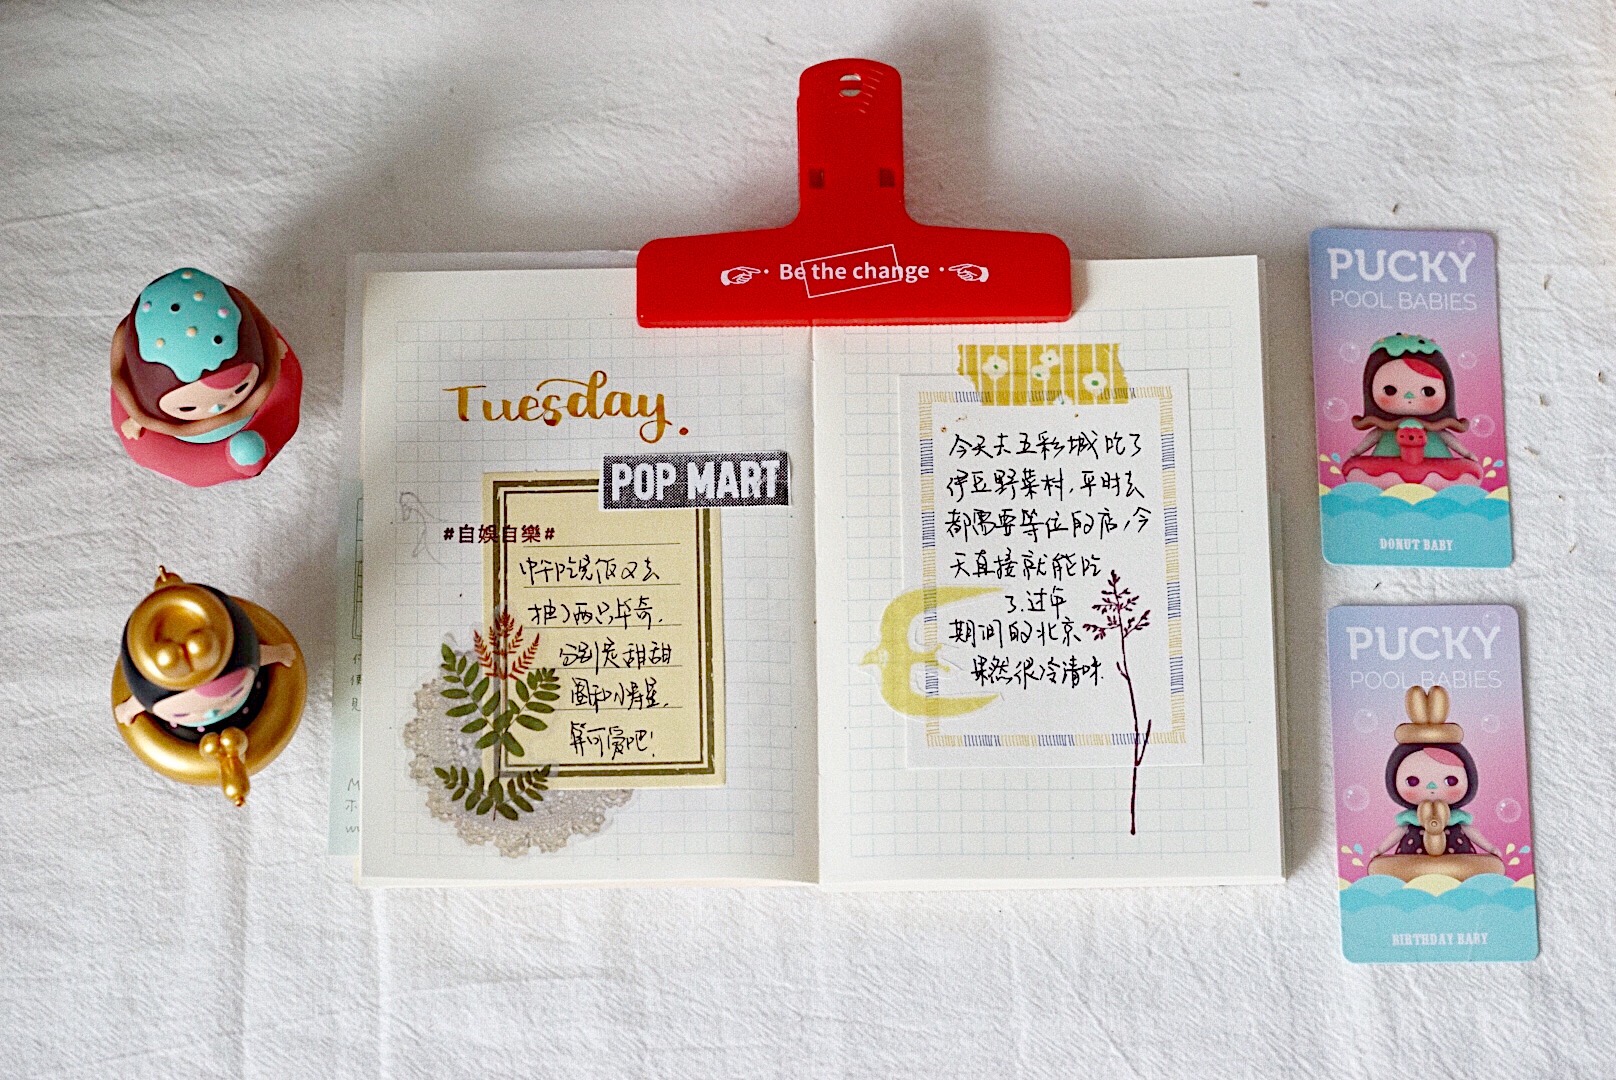 Be the change
Tuesday.
POP MART
#自娛自樂#
中午吃完饭又去
抽了两只毕奇.
分别是甜甜
圈和小寿星.
算可爱吧!
今天去五彩城吃了
伊豆野菜村,平时去
都需要等位的店,今
天直接就能吃
了.过年
期间的北京
果然很冷清呀.
PUCKY
POOL BABIES
DONUT BABY
PUCKY
POOL BABIES
BIRTHDAY BABY